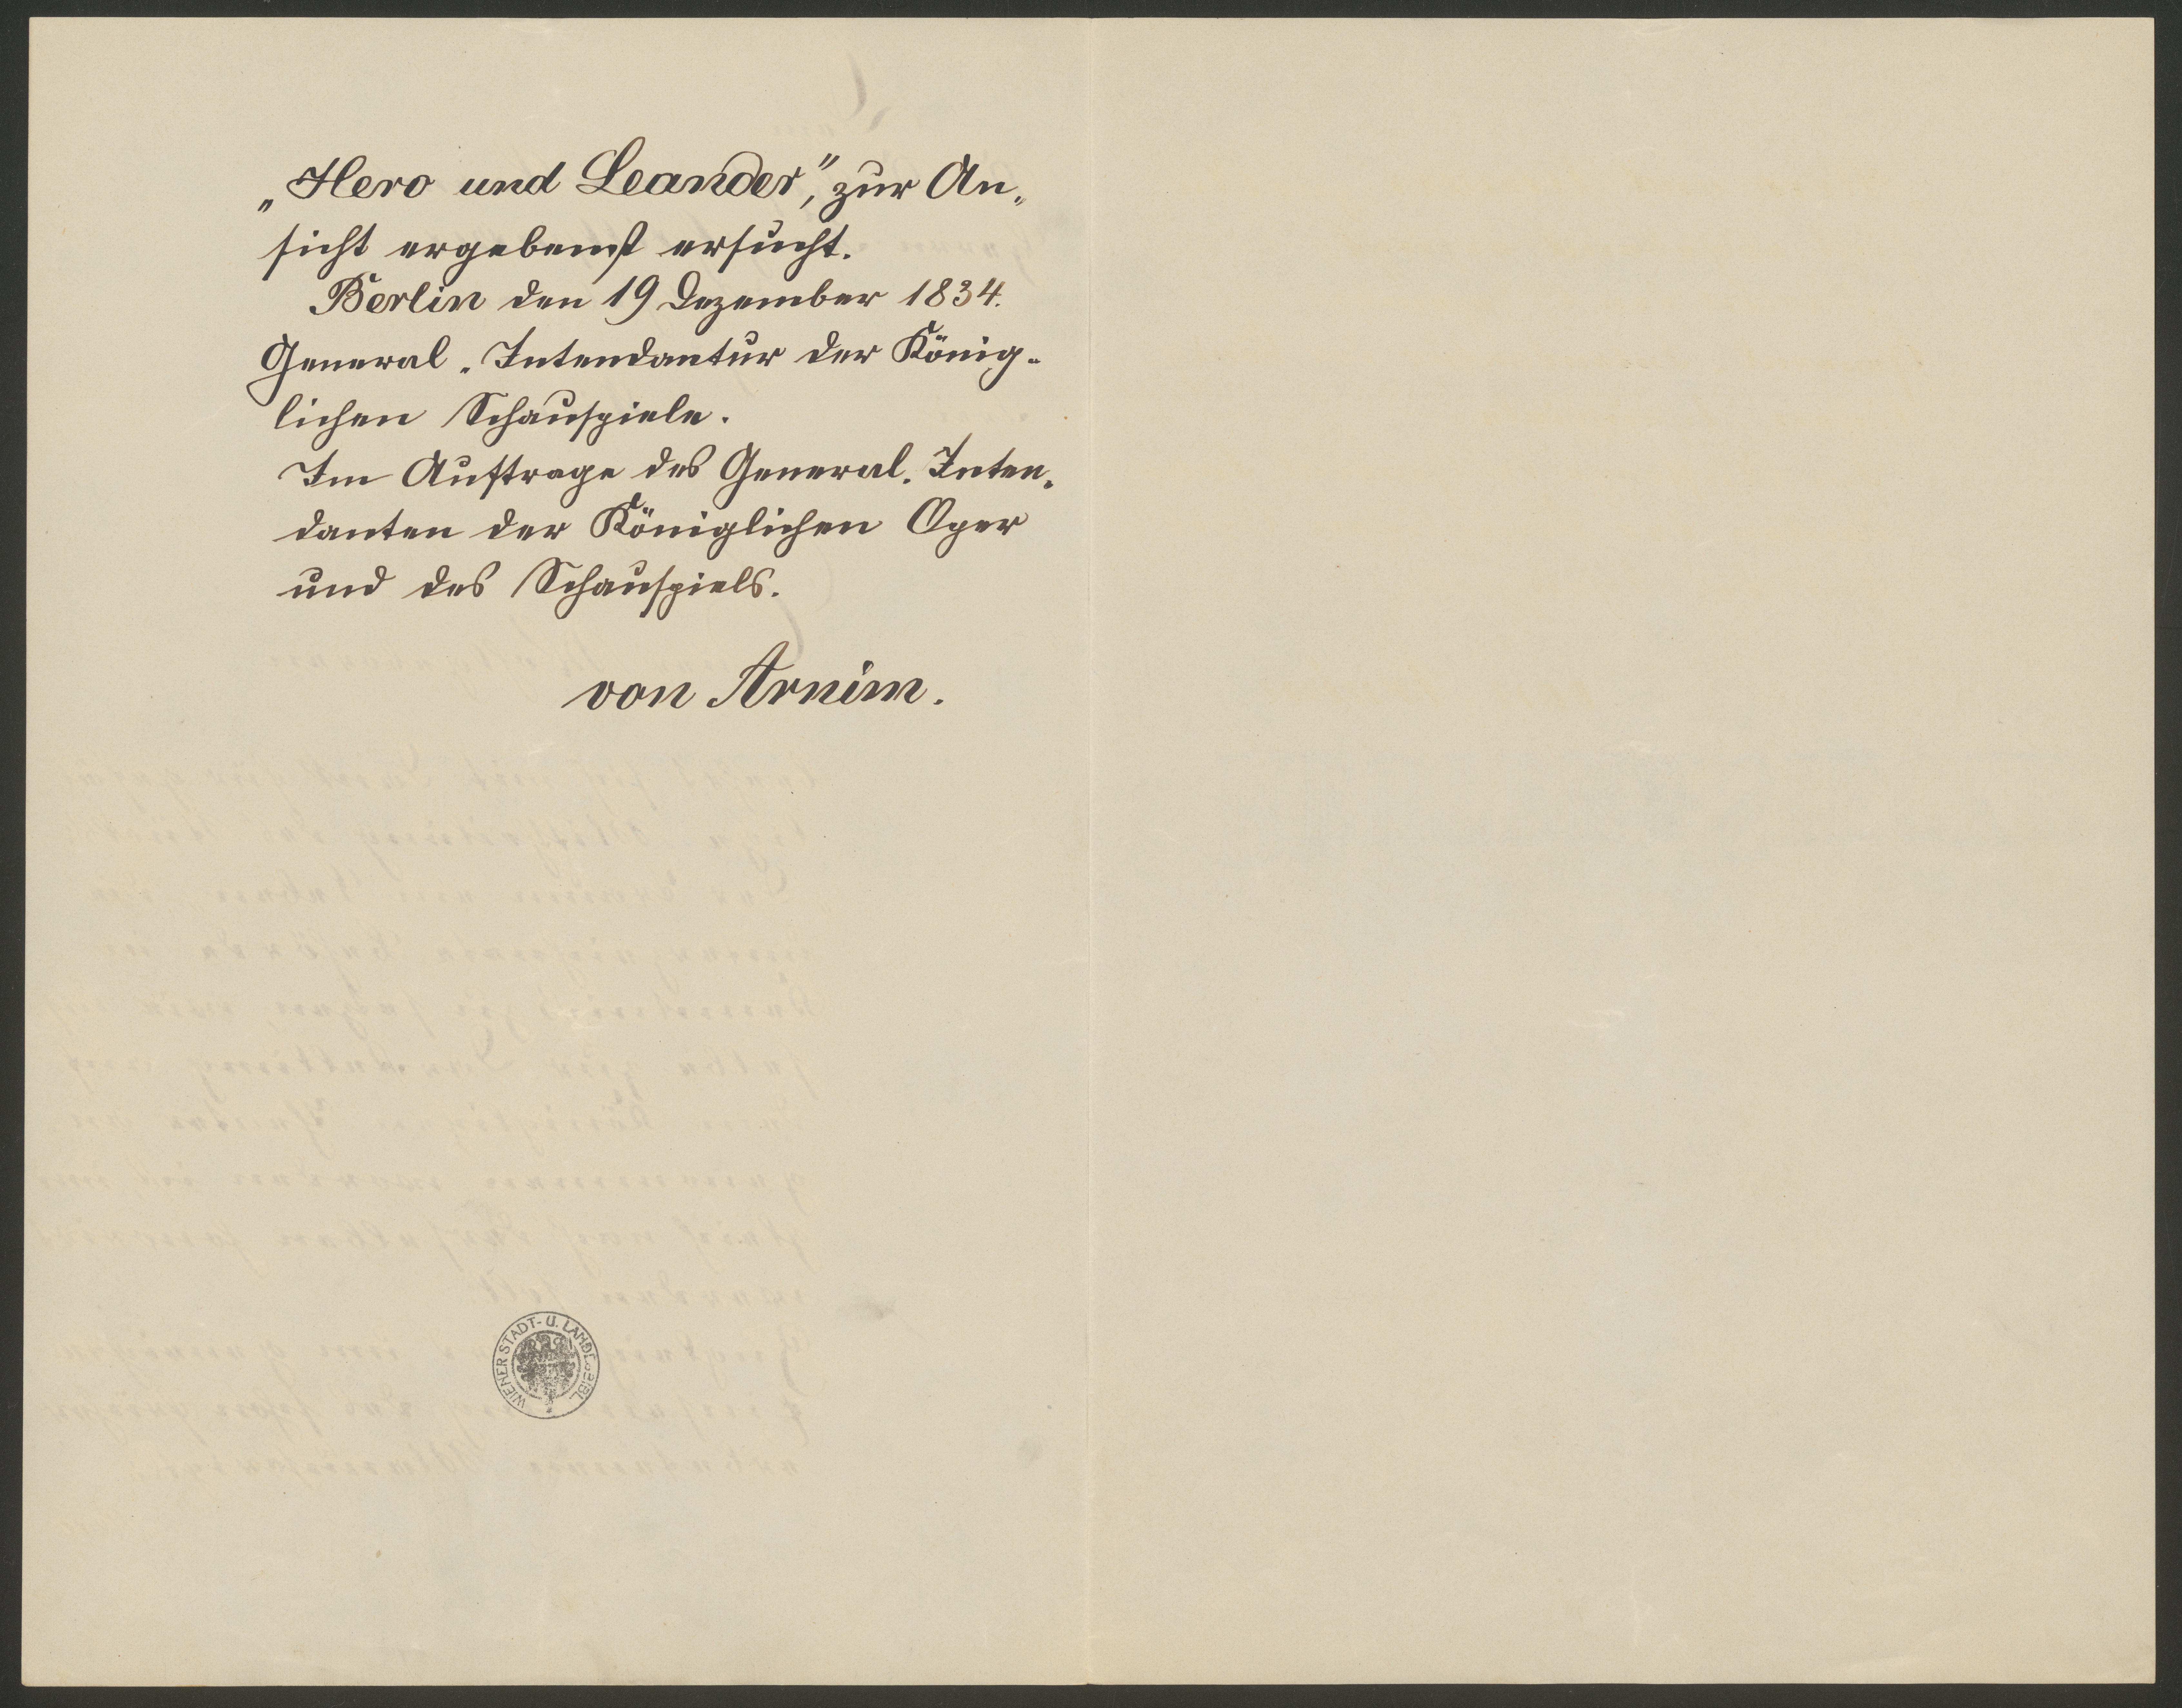 „Hero und Leander", zur An-
sicht ergebenst ersucht.
Berlin den 19 Dezember 1834.
General-Intendantur der König-
lichen Schauspiele.
Im Auftrage des General-Inten-
danten der Königlichen Oper
und des Schauspiels.
von Arnim.
WIENER STADT- U. LANDESBIBL.